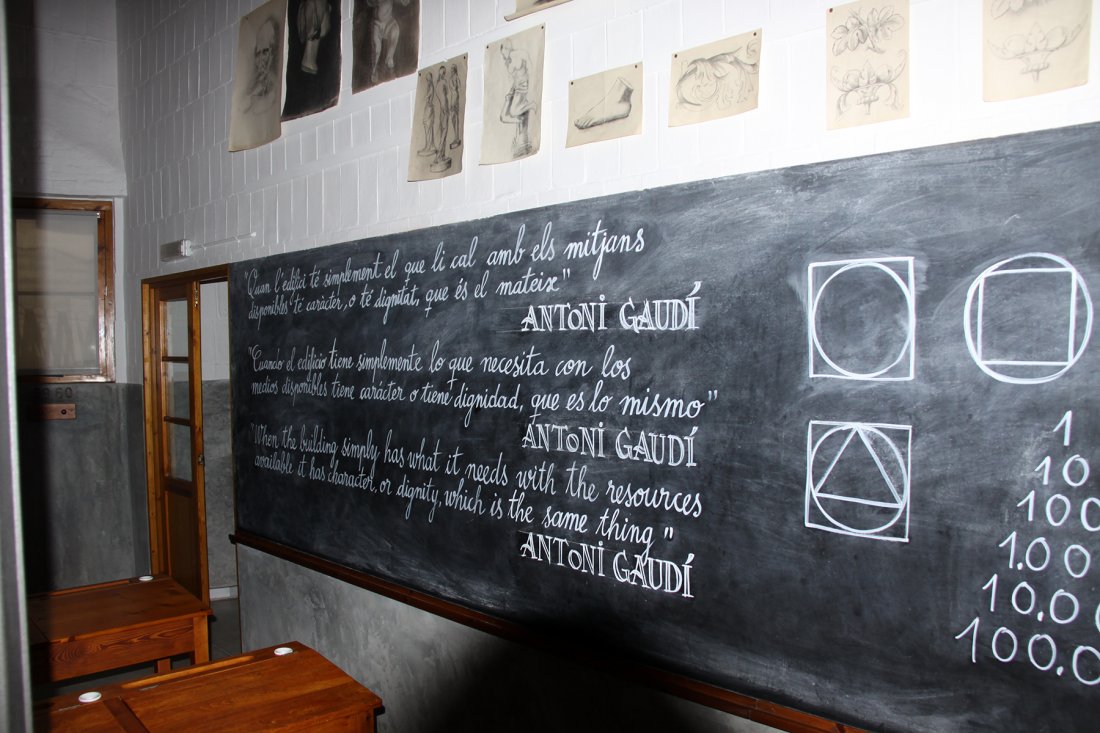 "Quan l'edifici té simplement el que li cal amb els mitjans
disponibles té caràcter, o té dignitat, que és el mateix"
ANTONI GAUDÍ
"Cuando el edificio tiene simplemente lo que necesita con los
medios disponibles tiene carácter o tiene dignidad, que es lo mismo"
ANTONI GAUDÍ
"When the building simply has what it needs with the resources
available it has character, or dignity, which is the same thing"
ANTONI GAUDÍ
1
10
100
1.00
10.0
100.0